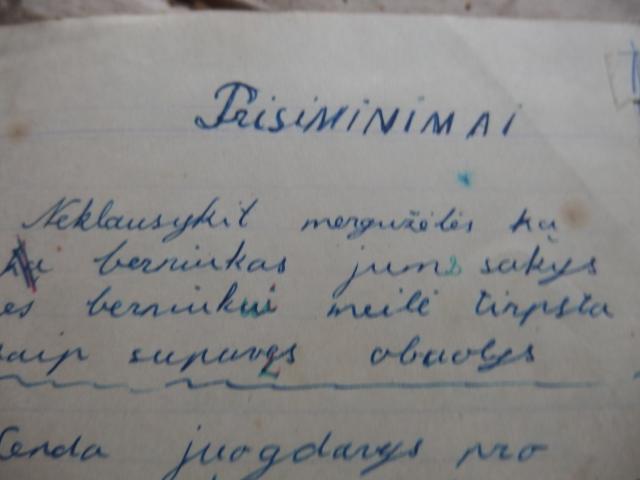 Prisiminimai
Neklausykit mergužėlės ką
berniukas jums sakys
es berniukui meilė tirpsta
aip supuvęs obuolys
juogdarys pro